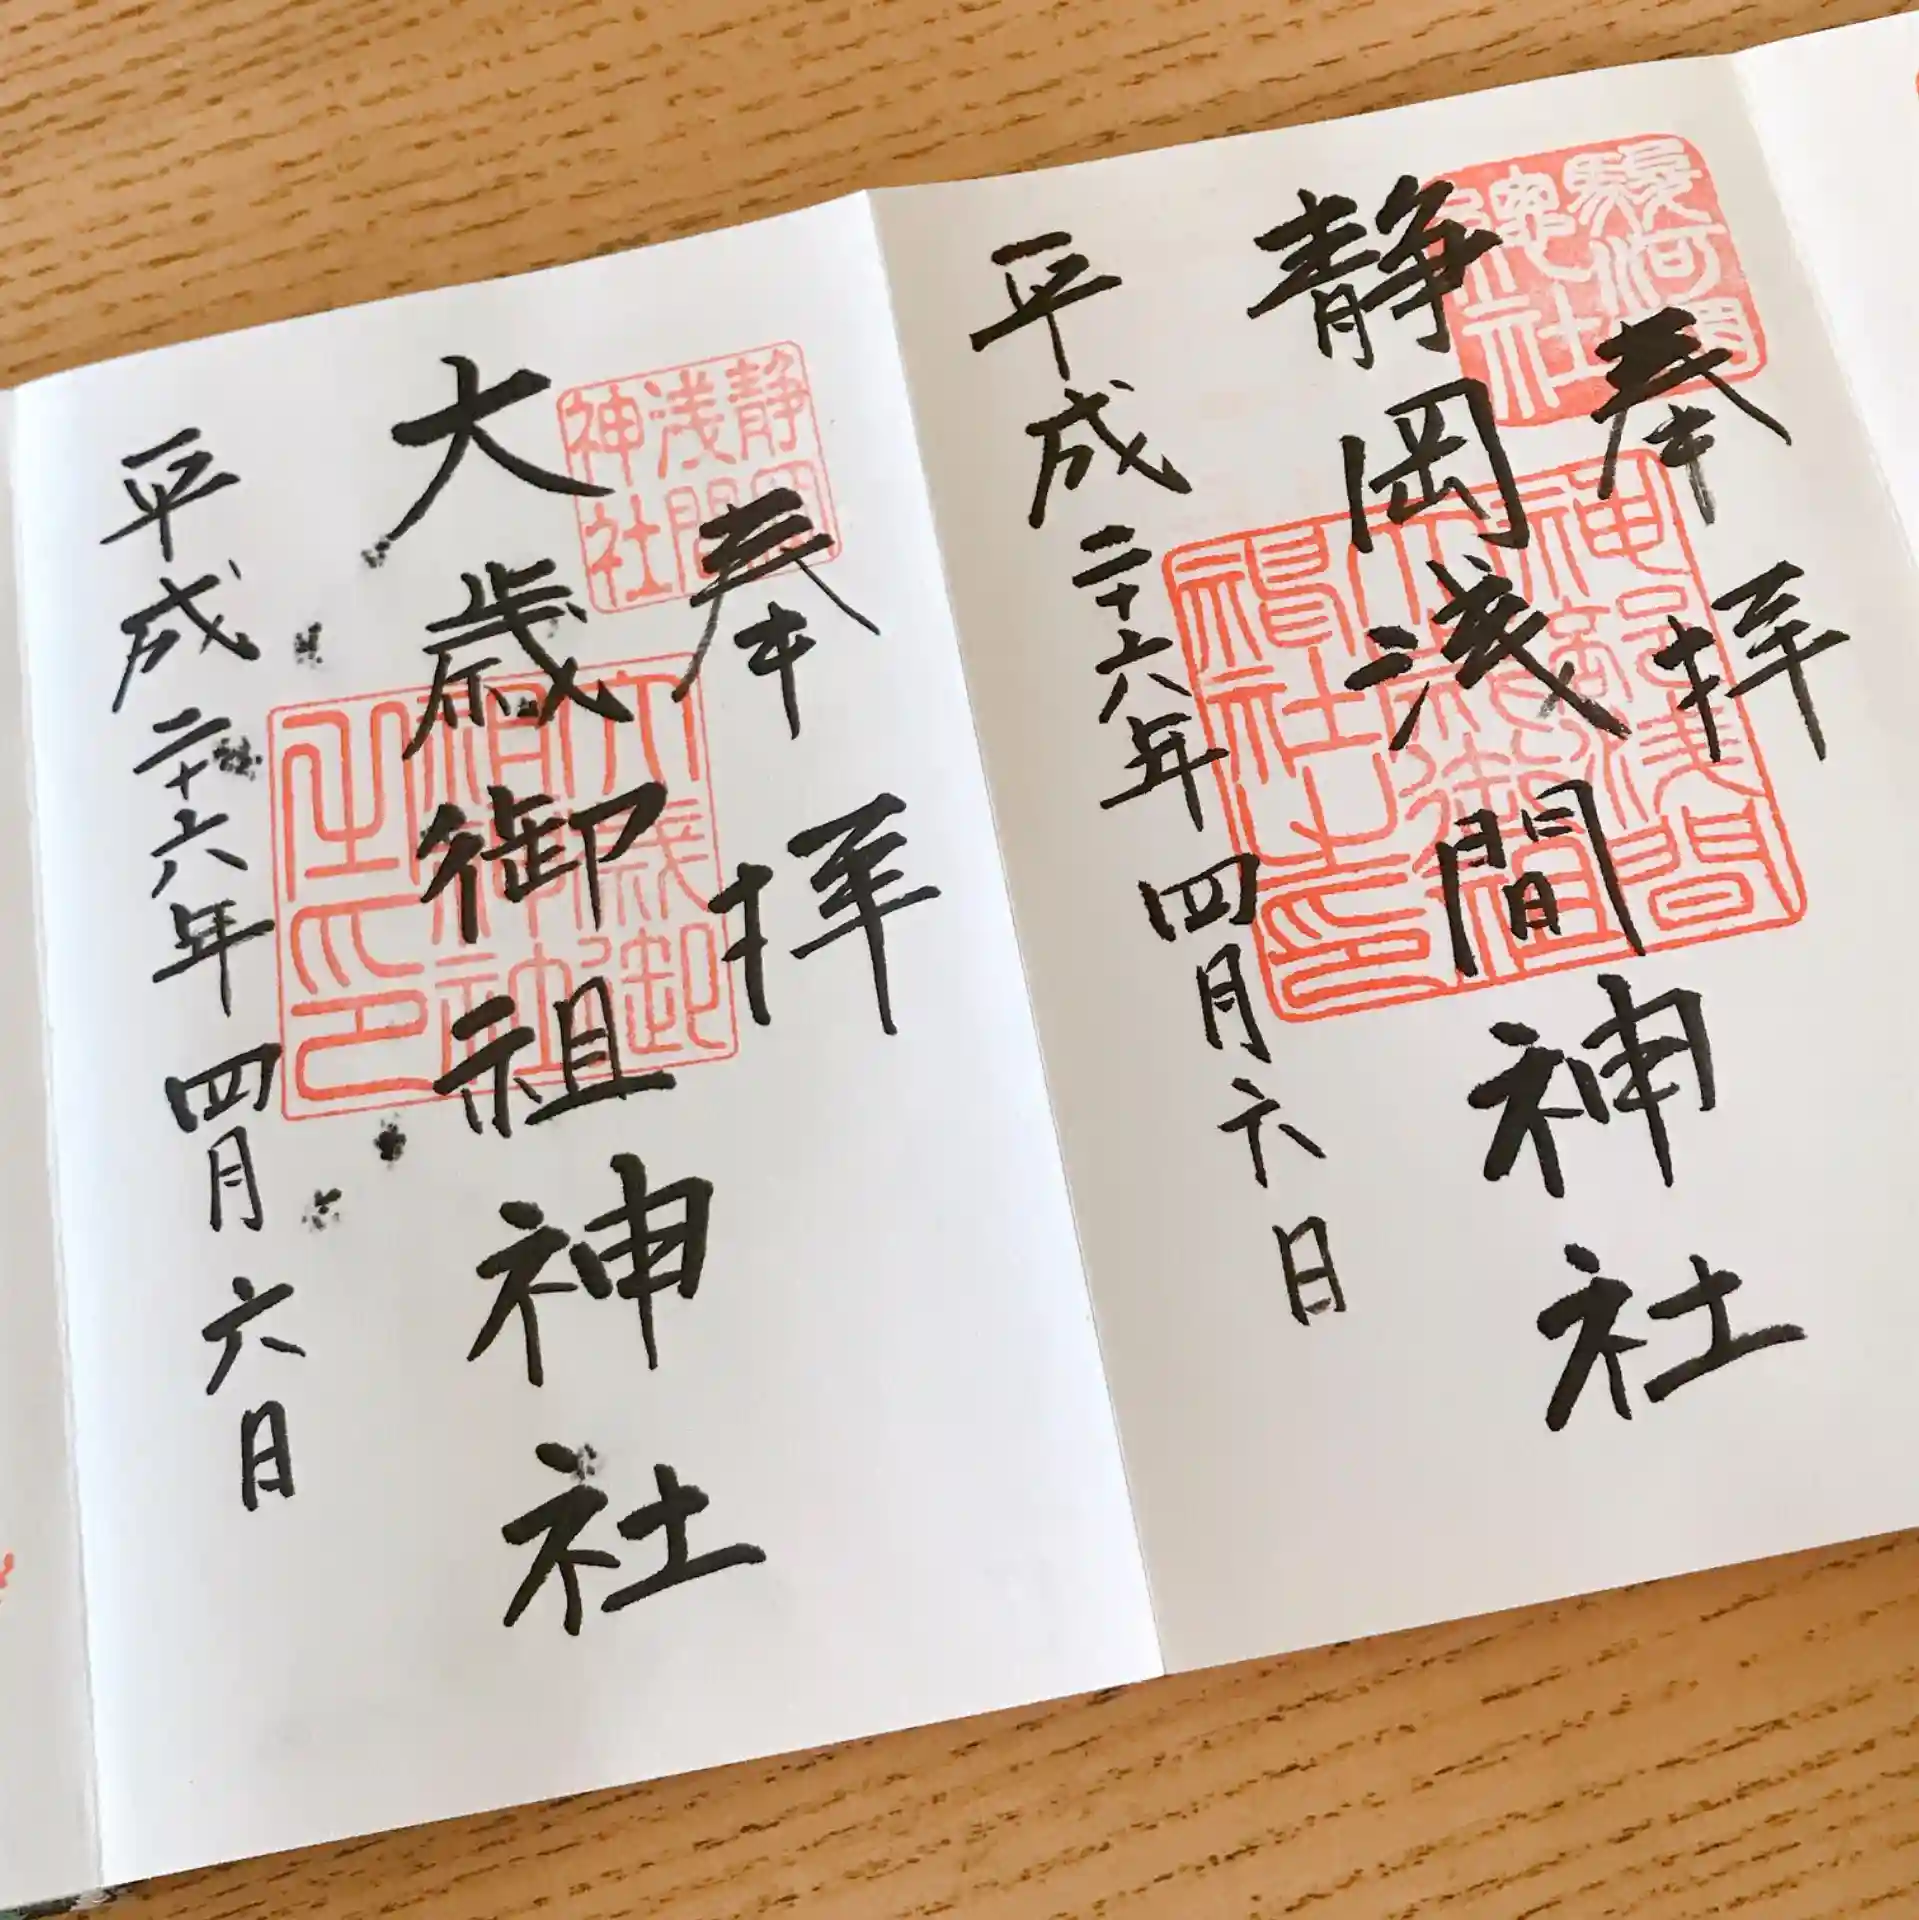 奉拝
静岡浅間神社
平成二十六年四月六日
奉拝
大歳御祖神社
平成二十六年四月六日
静岡
浅間
神社